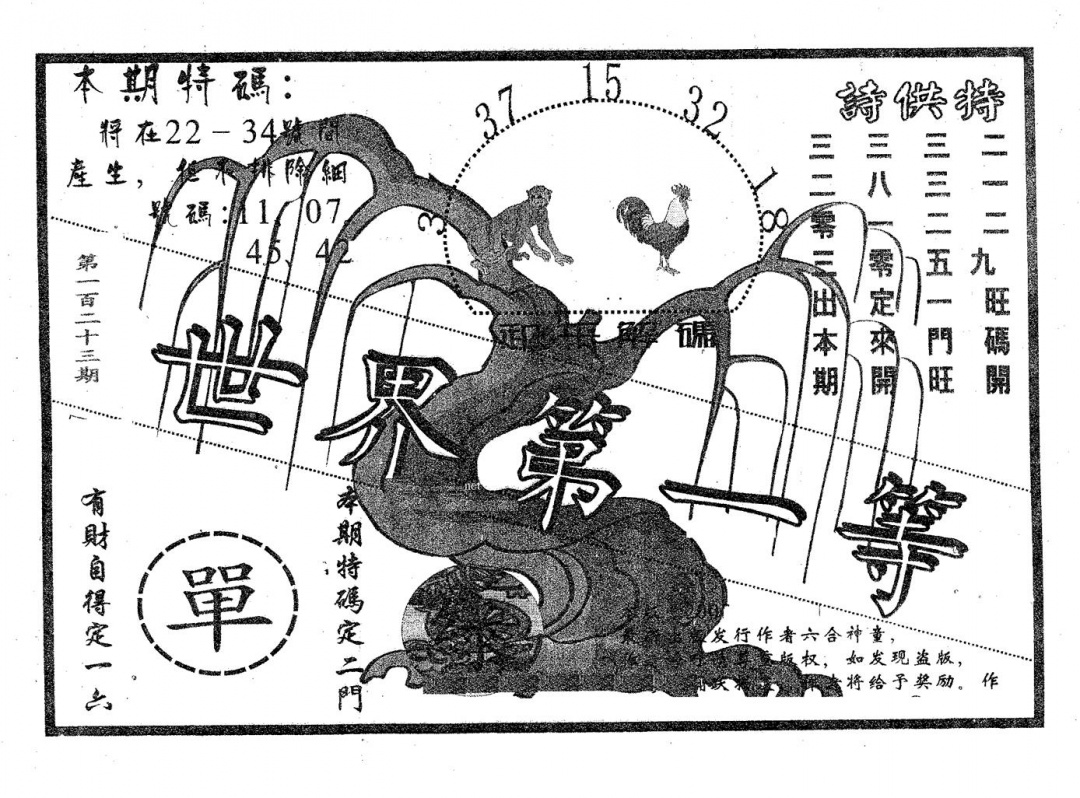 本期特碼：
將在22－34號間
產生，但不排除細
號碼:11、07、
45、42
31
37
15
32
18
特供詩
二一二九旺碼開
三三二五一門旺
三八一零定來開
三二零三出本期
第一百二十三期
解碼
世界第一等
本期特碼定二門
單
有財自得定一六
发行作者六合神童，
版权，如发现盗版，
将给予奖励。作